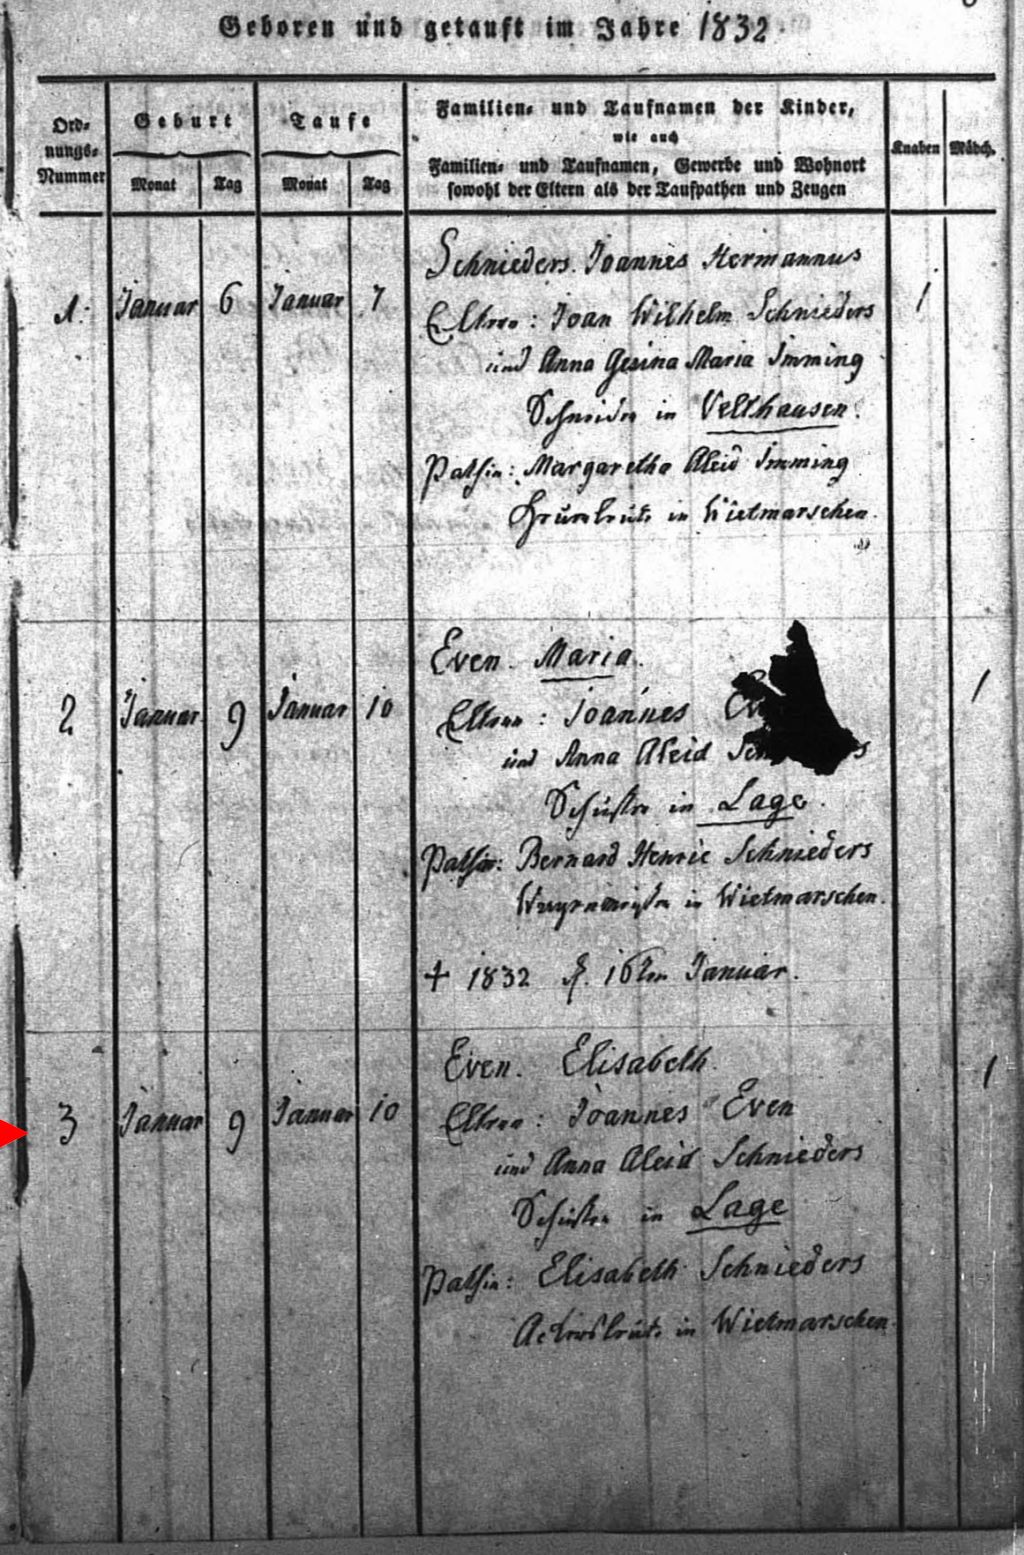 Geboren und getauft im Jahre 1832
Ord-
nungs-
Nummer
Geburt
Monat Tag
Taufe
Monat Tag
Familien- und Taufnamen der Kinder,
wie auch
Familien- und Taufnamen, Gewerbe und Wohnort
sowohl der Eltern als der Taufpathen und Zeugen
Knaben Mädch.
1. Januar 6 Januar 7
Schnieders. Joannes Hermannus 1
Eltern: Joan Wilhelm Schnieders
und Anna Gesina Maria Imming
Schneider in Velthausen.
Pathin: Margaretha Aleid Imming
in Wietmarschen.
2 Januar 9 Januar 10
Even. Maria. 1
Eltern: Joannes
und Anna Aleid
Schuster in Lage.
Pathe: Bernard Henric Schnieders
in Wietmarschen.
† 1832 d. 16ten Januar.
3 Januar 9 Januar 10
Even. Elisabeth. 1
Eltern: Joannes Even
und Anna Aleid Schnieders
Schuster in Lage
Pathin: Elisabeth Schnieders
Ackersleute in Wietmarschen.